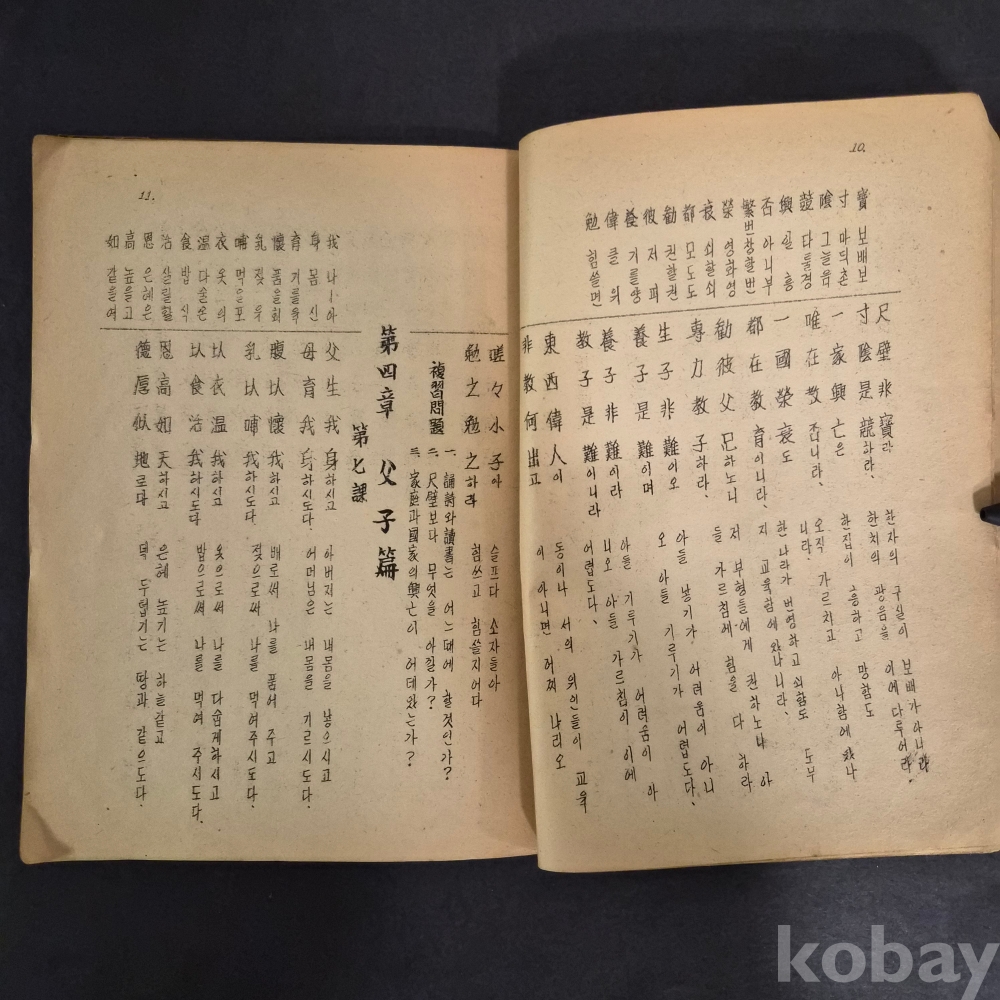 10.
寶 보배보
寸 마듸촌
陰 그늘음
競 다툴경
興 일흥
否 아니부
繁 번창할번
榮 영화영
衰 쇠할쇠
都 모도도
勸 권할권
彼 저피
養 기를양
偉 클위
勉 힘쓸면
尺璧非寶라 한자의 구실이 보배가아니라
寸陰是競하라. 한치의 광음을 이에다루어라.
一家興亡은 한집이 흥하고 망함도
唯在敎否니라、 오직 가르치고 아니함에 있나니라.
一國榮衰도 한나라가 번영하고 쇠함도
都在敎育이니라、 도무지 교육함에 있나니라、
勸彼父兄하노니 저 부형들에게 권하노니
專力敎子하라、 아들 가르침에 힘을 다 하라
生子非難이오 아들 낳기가 어려움이 아니오
養子是難이며 아들 기루기가 어렵도다、
養子非難이라 아들 기루기가 어려움이 아니오
敎子是難이니라 아들 가르침이 이에 어렵도다、
東西偉人이 동이나 서의 위인들이
非敎何出고 교육이 아니면 어찌 나리오
11.
嗟々小子아 슬프다 소자들아
勉之勉之하라 힘쓰고 힘쓸지어다
複習問題
一、誦詩와讀書는 어느때에 할것인가?
二、尺璧보다 무엇을 아낄가?
三、家庭과國家의興亡이 어데있는가?
第四章 父子篇
第七課
我 나ㅣ아
身 몸신
育 기를육
懷 품을회
乳 젖유
哺 먹을포
衣 옷의
温 다술온
食 밥식
活 살릴활
恩 은혜은
高 높을고
如 같을여
父生我身하시고 아버지는 내몸을 낳으시고
母育我身하시도다. 어머님은 내몸을 기르시도다.
腹以懷我하시고 배로써 나를 품어 주고
乳以哺我하시도다 젖으로써 나를 먹여주시도다.
以衣温我하시고 옷으로써 나를 다숩게하시고
以食活我하시도다 밥으로써 나를 먹여 주시도다.
恩高如天하시고 은혜 높기는 하늘같고
德厚似地로다 덕 두텁기는 땅과 같으도다.
kobay